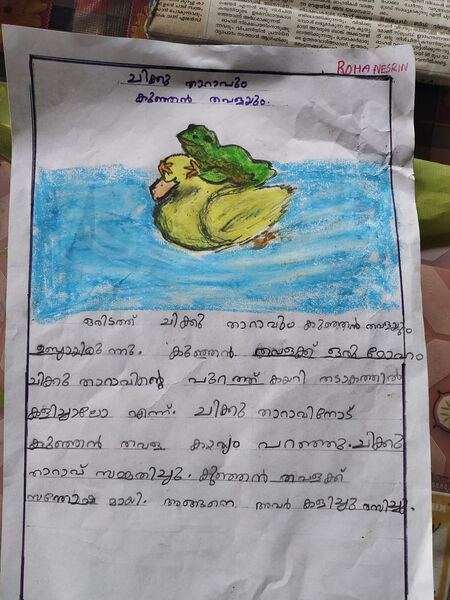 ROHA NESRIN
ചിക്കു താറാവും
കുഞ്ഞൻ തവളയും.
ഒരിടത്ത് ചിക്കു താറാവും കുഞ്ഞൻ തവളയും
ഉണ്ടായിരുന്നു. കുഞ്ഞൻ തവളക്ക് ഒരു മോഹം
ചിക്കു താറാവിന്റെ പുറത്ത് കയറി തടാകത്തിൽ
കളിച്ചാലോ എന്ന്. ചിക്കു താറാവിനോട്
കുഞ്ഞൻ തവള കാര്യം പറഞ്ഞു. ചിക്കു
താറാവ് സമ്മതിച്ചു. കുഞ്ഞൻ തവളക്ക്
സന്തോഷമായി. അങ്ങനെ അവർ കളിച്ചു രസിച്ചു.